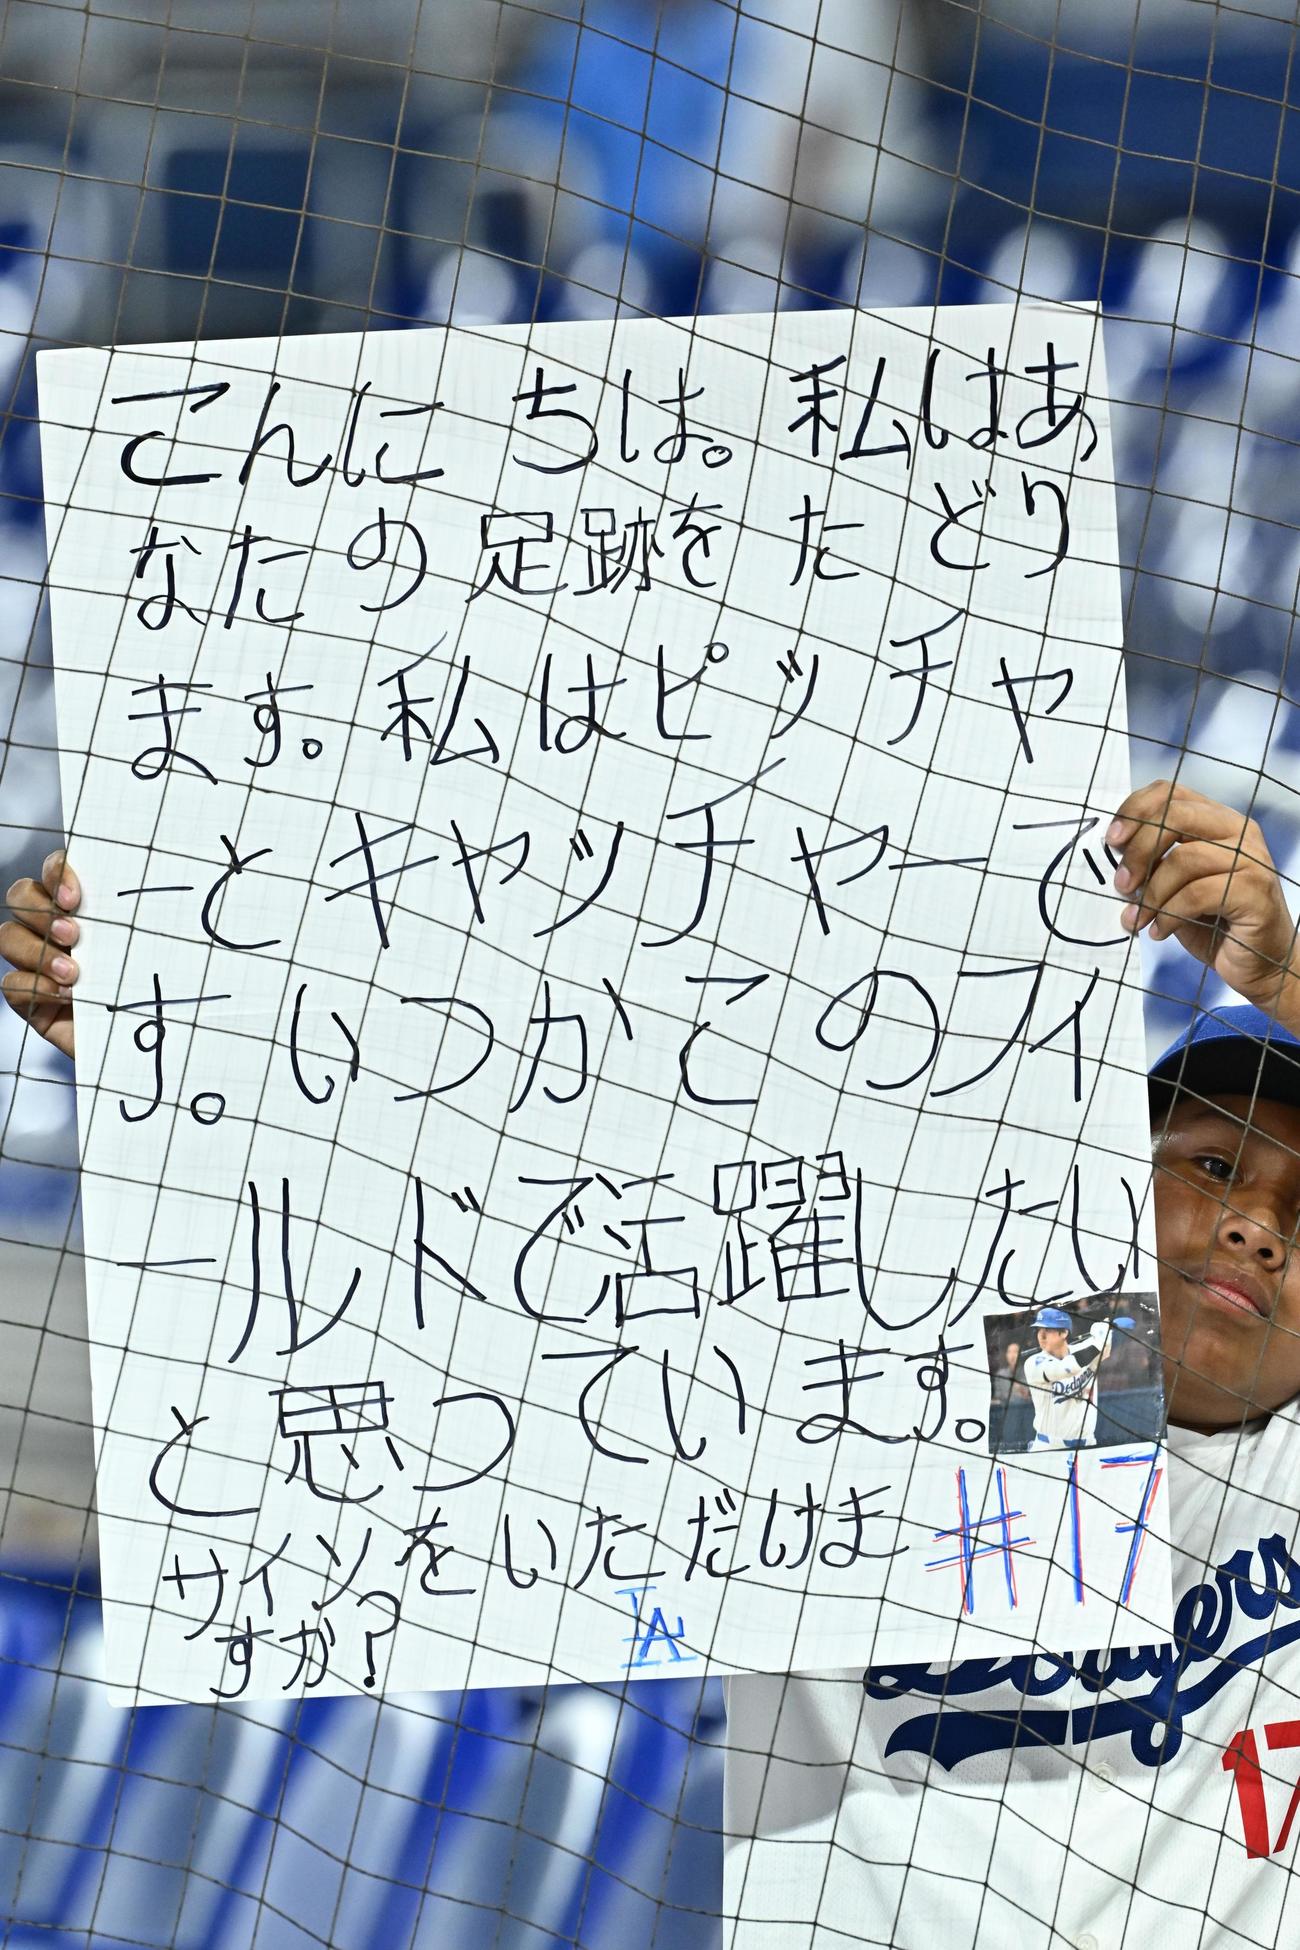 こんにちは。私はあ
なたの足跡をたどり
ます。私はピッチャ
ーとキャッチャーで
す。いつかこのフィ
ールドで活躍したい
と思っています。
サインをいただけま
すか?
#17
LA
Dodgers
Dodgers
17